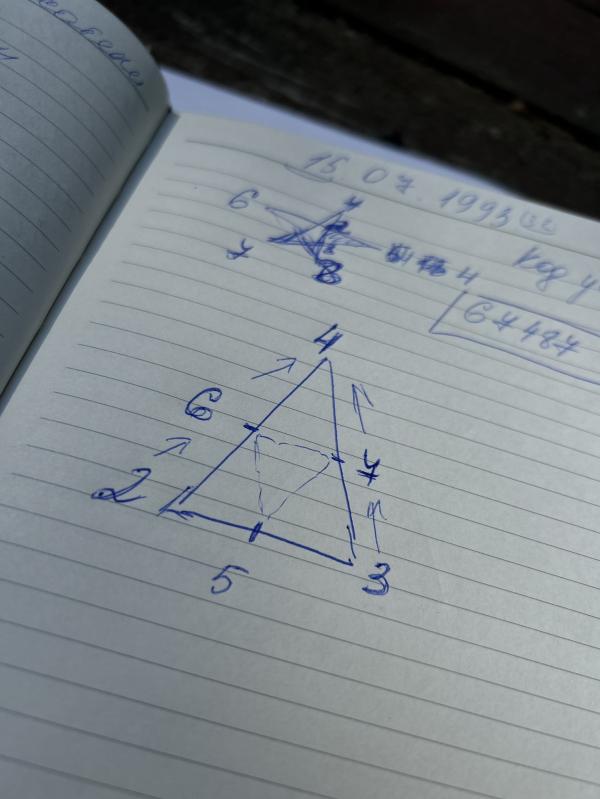 15.07.1993
6 4
7 8 4
Код
67487
4
6
7
2
5 3